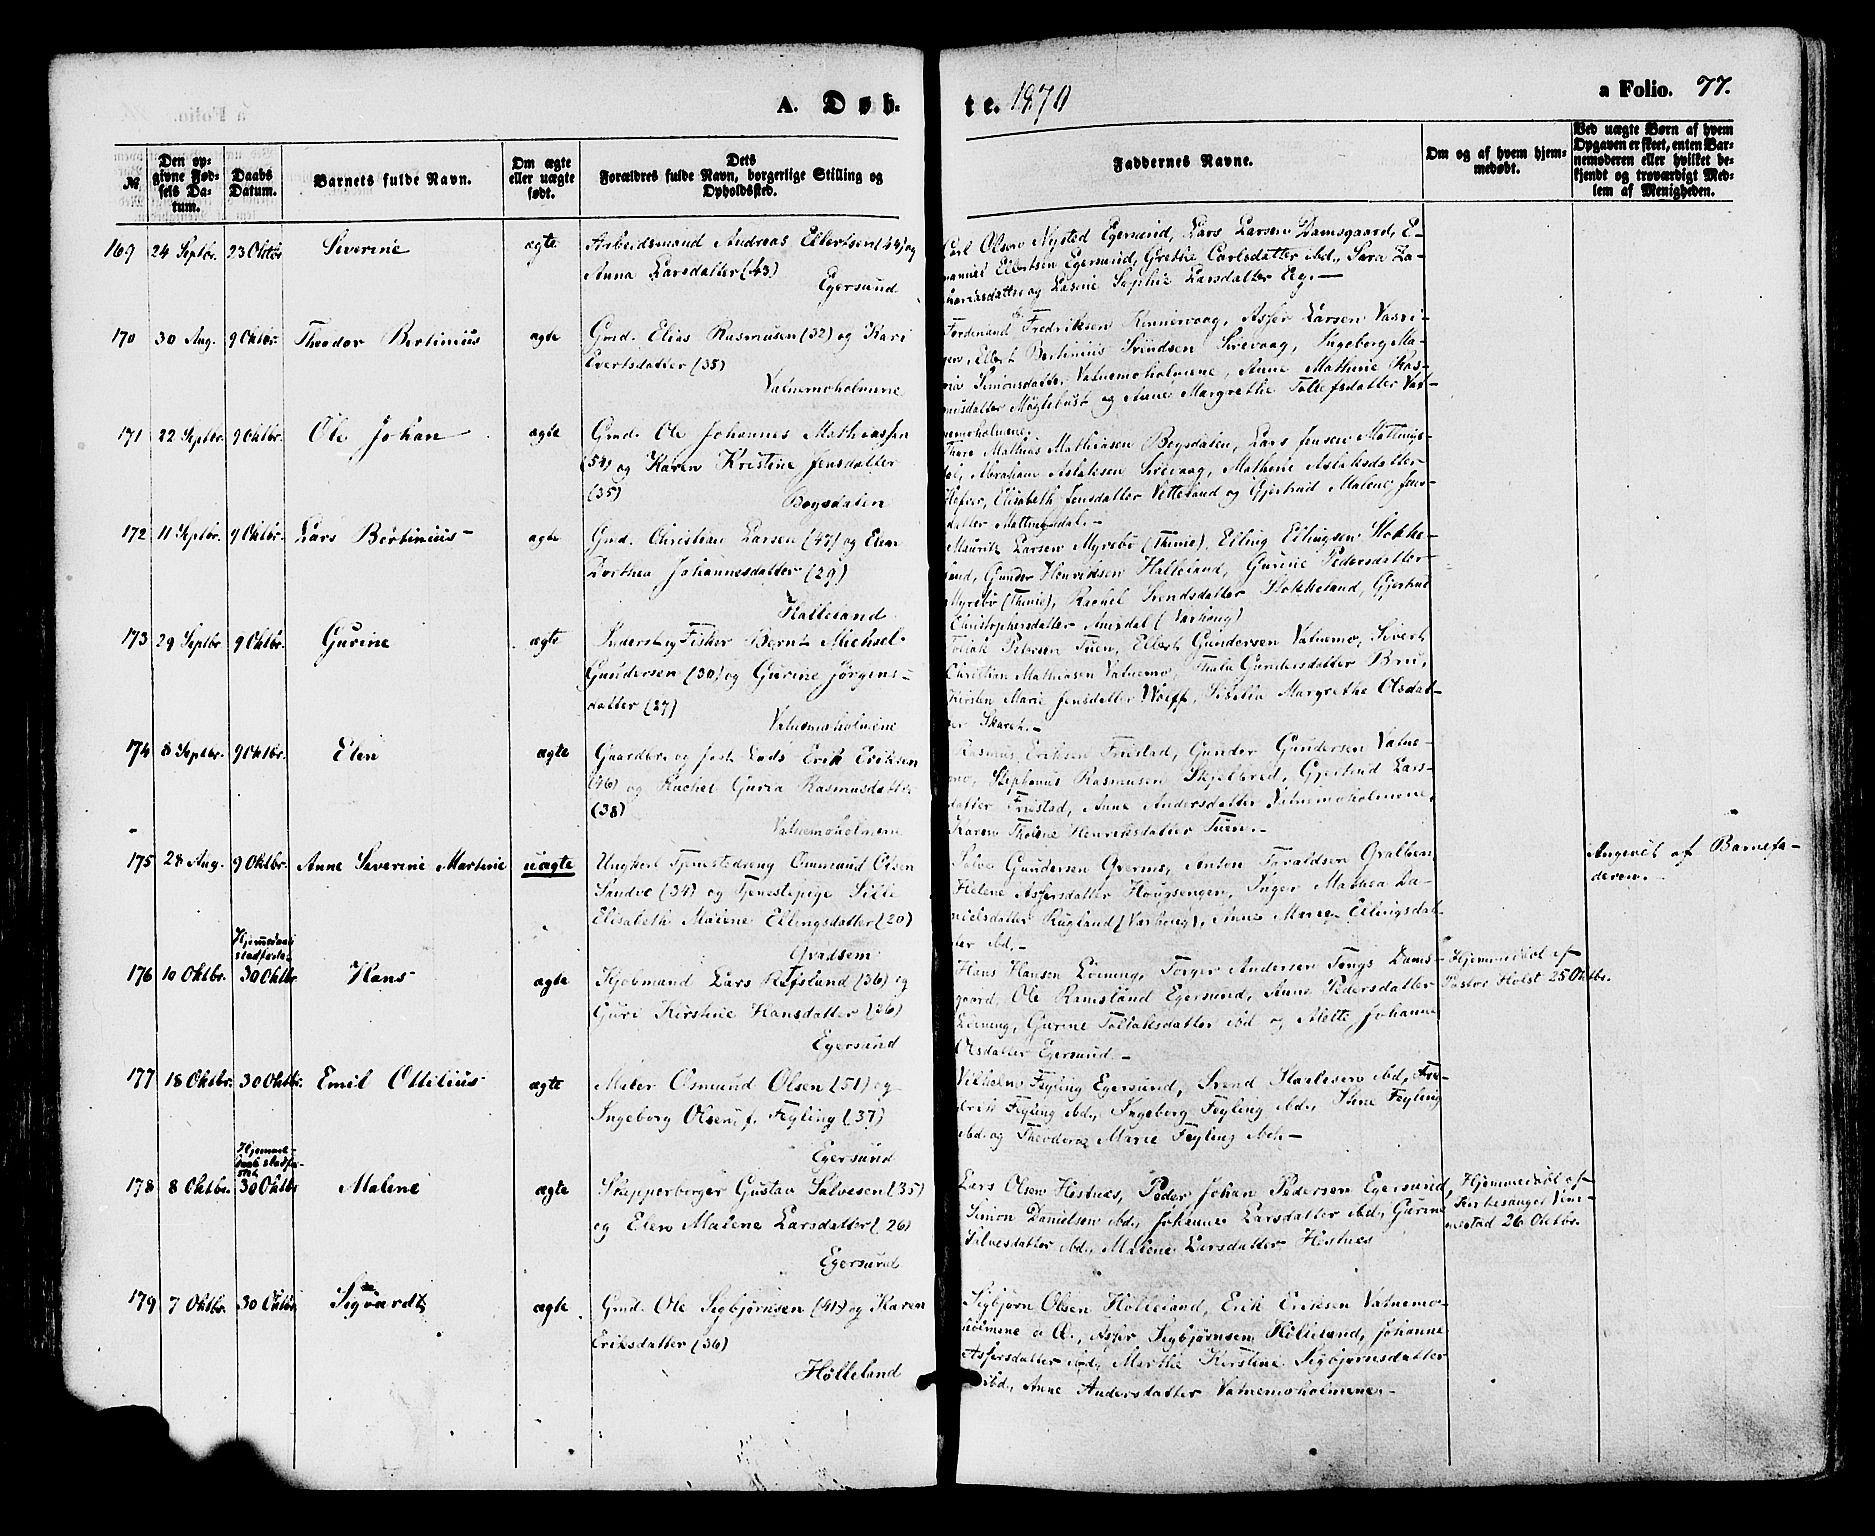 A. Døb-
te. 1870
a Folio. 77.
№
Den op-
givne Fød-
sels Da-
tum.
Daabs
Datum.
Barnets fulde Navn.
Om ægte
eller uægte
født.
Dets
Forældres fulde Navn, borgerlige Stilling og
Opholdssted.
Faddernes Navne.
Om og af hvem hjem-
medøbt.
Ved uægte Børn af hvem
Opgaven er skeet, enten Bar-
nemoderen eller hvilket be-
kjendt og troværdigt Med-
lem af Menigheden.
169 24 Septbr. 23 Oktbr Severine ægte
Arbeidsmand Andreas Ellertsen (44) og
Anna Larsdatter (43)
Egersund
Carl Olsen Nysted Egersund, Lars Larsen Damsgaard, E-
manuel Ellertsen Egersund, Grethe Carlsdatter ibd., Sara Za-
chariasdatter og Lasine Sophie Larsdatter Eg.—
170 30 Aug. 9 Oktbr. Theodor Bertinius ægte
Gmd. Elias Rasmusen (32) og Kari
Evertsdatter (35)
Vatnemoholmene
Ferdinand Fredriksen Kinnervaag, Asser Larsen
Ellert Bertinius Svindsen Sirevaag, Ingeborg Ma-
ria Simonsdatter Vatnemoholmene, Anne Mathine Ras-
musdatter Møglebust og Anne Margrethe Tollefsdatter Vat-
nemoholmene.
171 22 Septbr. 9 Oktbr. Ole Johan ægte
Gmd. Ole Johannes Mathiassen
(54) og Karen Kristine Jensdatter
(35)
Bøgsdalen
Mathias Mathiasen Bøgsdalen, Lars Jensen Mattings-
dal, Abraham Aslaksen Sirevaag, Mathine Aslaksdatter
Elisabeth Jensdatter Vetteland og Gjertrud Malene Jens-
datter Mattingsdal.—
172 11 Septbr. 9 Oktbr. Lars Bertinius ægte
Gmd. Christian Larsen (47) og Elen
Dorthea Johannesdatter (29)
Halleland
Mauritz Larsen Myrebø (Thime), Elling Ellingsen Stokke-
land, Gunder Henriksen Halleland, Gurine Pedersdatter
Myrebø (Thime), Rachel Svendsdatter Stokkeland, Gjertrud
Christophersdatter Aarsdal (Varhoug)
173 29 Septbr 9 Oktbr. Gurine ægte
Inderst og Fisker Bernt Michael
Gundersen (30) og Gurine Jørgens-
datter (27)
Vatnemoholmene
Tollak Petersen Tuen, Ellert Gundersen Vatnemo, Sivert
Christian Mathiasen Vatnemo, Thalia Gundersdatter Bru,
Kirsten Marie Jensdatter Wolff, Sisilia Margrethe Olsdat-
ter Skaret.—
174 8 Septbr. 9 Oktbr. Elen ægte
Gaardbr. og fast Lods Erik Eriksen
(46) og Rachel Guria Rasmusdatter
(38)
Vatnemoholmene
Rasmus Eriksen Friestad, Gunder Gundersen Vatne-
mo, Stephanus Rasmusen Skjelbred, Gjertrud Lars-
datter Friestad, Anne Andersdatter Vatnemoholmene,
Karen Tholene Henriksdatter Tuen.—
175 28 Aug. 9 Oktbr. Anne Severine Martine uægte
Ungkarl Tjenestedreng Ommund Olsen
Sandve (34) og Tjenestepige Sille
Elisabeth Malene Ellingsdatter (20)
Qvadsem
Gundersen Anton Tjraldsen Qvalben,
Helene Assersdatter Hougsengen, Inger Mathea Da-
nielsdatter Rugland (Varhoug), Anne Marie Ellingsdat-
ter ibd.—
Angivet af Barnefa-
deren.—
Hjemmedaab
stadfæstet
176 10 Oktbr. 30 Oktbr Hans ægte
Kjøbmand Lars Refsland (36) og
Guri Kirstine Hansdatter (26)
Egersund
Hans Hansen Løining, Torger Andersen Tengs Dams-
gaard, Ole Ramsland Egersund, Anne Pedersdatter
Løining, Gurine Tollaksdatter ibd og Mette Johanne
Olsdatter Egersund.—
Hjemmedøbt af
Pastor Holst 25 Oktbr.
177 18 Oktbr. 30 Oktbr. Emil Ottilius ægte
Maler Osmund Olsen (51) og
Ingeborg Olsen, f. Feyling (37)
Egersund
Vilhelm Feyling Egersund, Svend Haalesen ibd, Fre-
drik Feyling ibd., Ingeborg Feyling ibd., Stine Feyling
ibd. og Theodora Marie Feyling ibd.—
Hjemme-
daab stadfæ-
stet
178 8 Oktbr. 30 Oktbr Malene ægte
Skipperborger Gustav Salvesen (35)
og Elen Malene Larsdatter (26)
Egersund
Lars Olsen Hestnes, Peder Johan Pedersen Egersund,
Simon Danielsen ibd., Johanne Larsdatter ibd., Gurine
Salvesdatter ibd., Malene Larsdatter Hestnes
Hjemmedøbt af
Kirkesanger Vine-
nestad 26 Oktbr.
179 7 Oktbr. 30 Oktbr Sigvardt ægte
Gmd. Ole Sigbjørnsen (41) og Karen
Eriksdatter (36)
Hølleland
Sigbjørn Olsen Hølleland, Erik Eriksen Vatnemo-
holmene d. Æ., Asser Sigbjørnsen Hølleland, Johanne
Assersdatter ibd, Marthe Kirstine Sigbjørnsdatter
ibd., Anne Andersdatter Vatnemoholmene.—